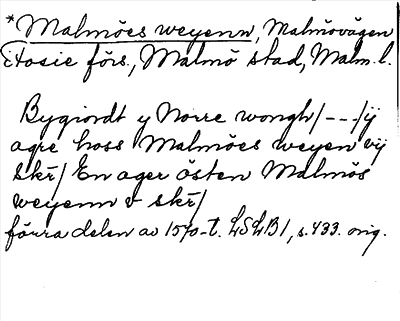 *Malmöes weyenn, Malmövägen
i Fosie förs., Malmö stad, Malm. l.
Bygiordt y Norre wongh/---/ij
agre hoss Malmöes weyen vij
skr/ En ager östen Malmös
weyenn v skr/
förra delen av 1570-t. LSLB1, s. 433. orig.